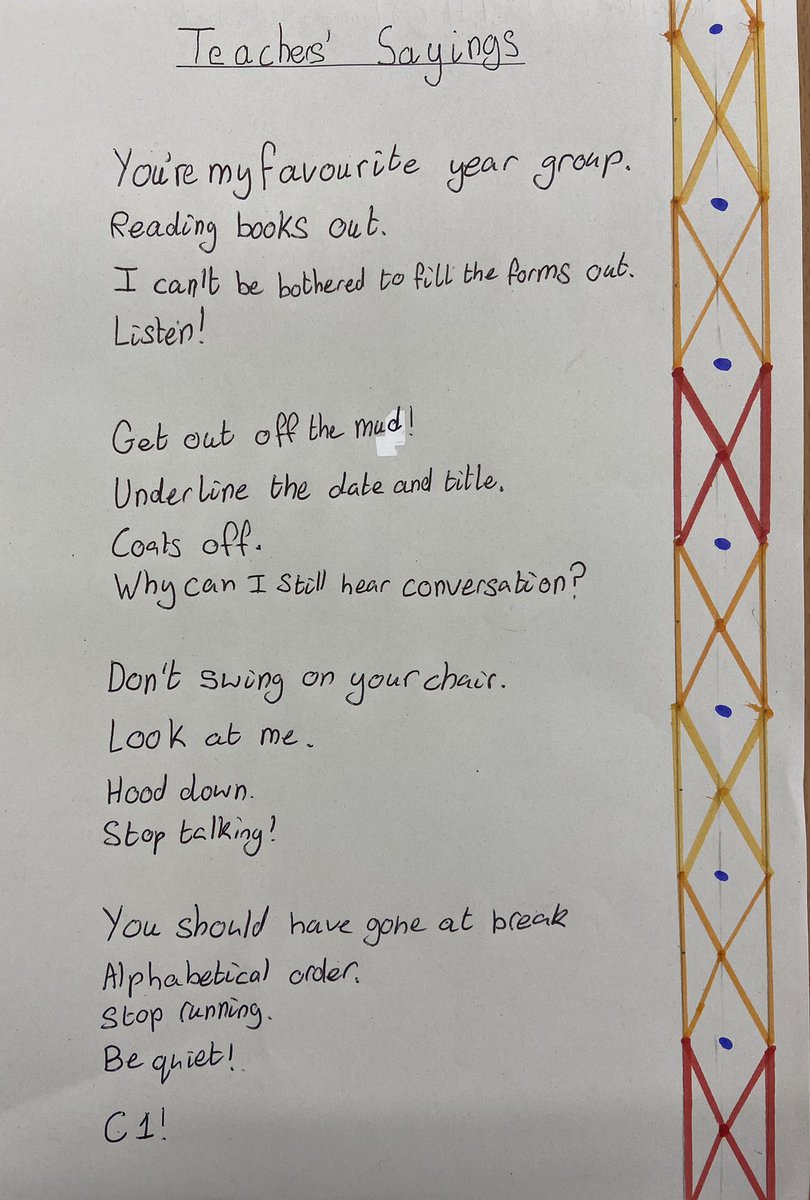 Teachers' Sayings
You're my favourite year group.
Reading books out.
I can't be bothered to fill the forms out.
Listen!
Get out off the mud!
Underline the date and title.
Coats off.
Why can I still hear conversation?
Don't swing on your chair.
Look at me.
Hood down.
Stop talking!
You should have gone at break
Alphabetical order.
Stop running.
Be quiet!
C1!